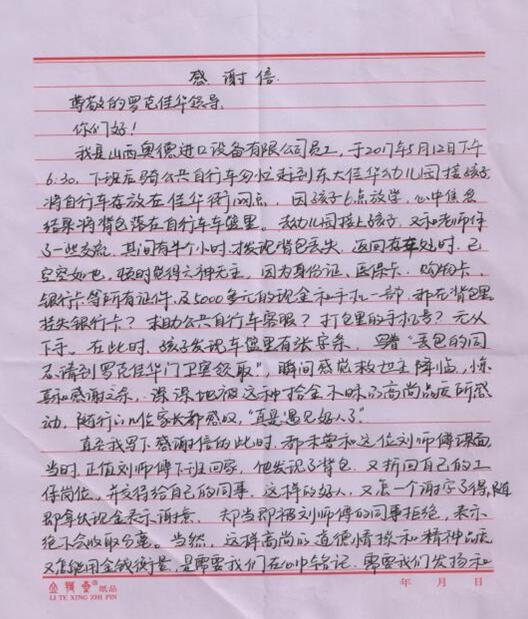 感谢信.
尊敬的罗克佳华领导:
你们好!
我是山西奥德进口设备有限公司员工, 于2017年5月12日下午
6:30, 下班后骑公共自行车匆忙赶到东大佳华幼儿园接孩子
将自行车存放在佳华街网点, 因孩子6点放学, 心中焦急
结果将背包落在自行车车篮里。去幼儿园接上孩子, 又和老师作
了一些交流, 其间有半个小时, 才发现背包丢失, 返回存车处时, 已
空空如也, 顿时觉得六神无主, 因为身份证、医保卡、购物卡、
银行卡等所有证件, 及5000多元的现金和手机一部, 都在背包里
挂失银行卡? 求助公共自行车客服? 打包里的手机号? 无从
下手。在此时, 孩子发现车篮里有张字条, 写着“丢包的同
志请到罗克佳华门卫室领取”, 瞬间感觉救世主降临, 惊
喜和感谢之余, 深深地被这种拾金不昧的高尚品质所感
动, 随行的几位家长都感叹, “真是遇见好人了”
直至我写下感谢信的此时, 都未曾和这位刘师傅谋面,
当时, 正值刘师傅下班回家, 他发现了背包, 又折回自己的工
作岗位, 并交待给自己的同事, 这样的好人, 又怎一个谢字了得, 随
即拿伏现金表示谢意, 却当即被刘师傅的同事拒绝, 表示
绝不会收取分毫。当然, 这样高尚的道德情操和精神品质
又怎能用金钱衡量, 是需要我们在心中铭记, 需要我们发扬和
纸品
LI TE XING ZHI PIN
年 月 日